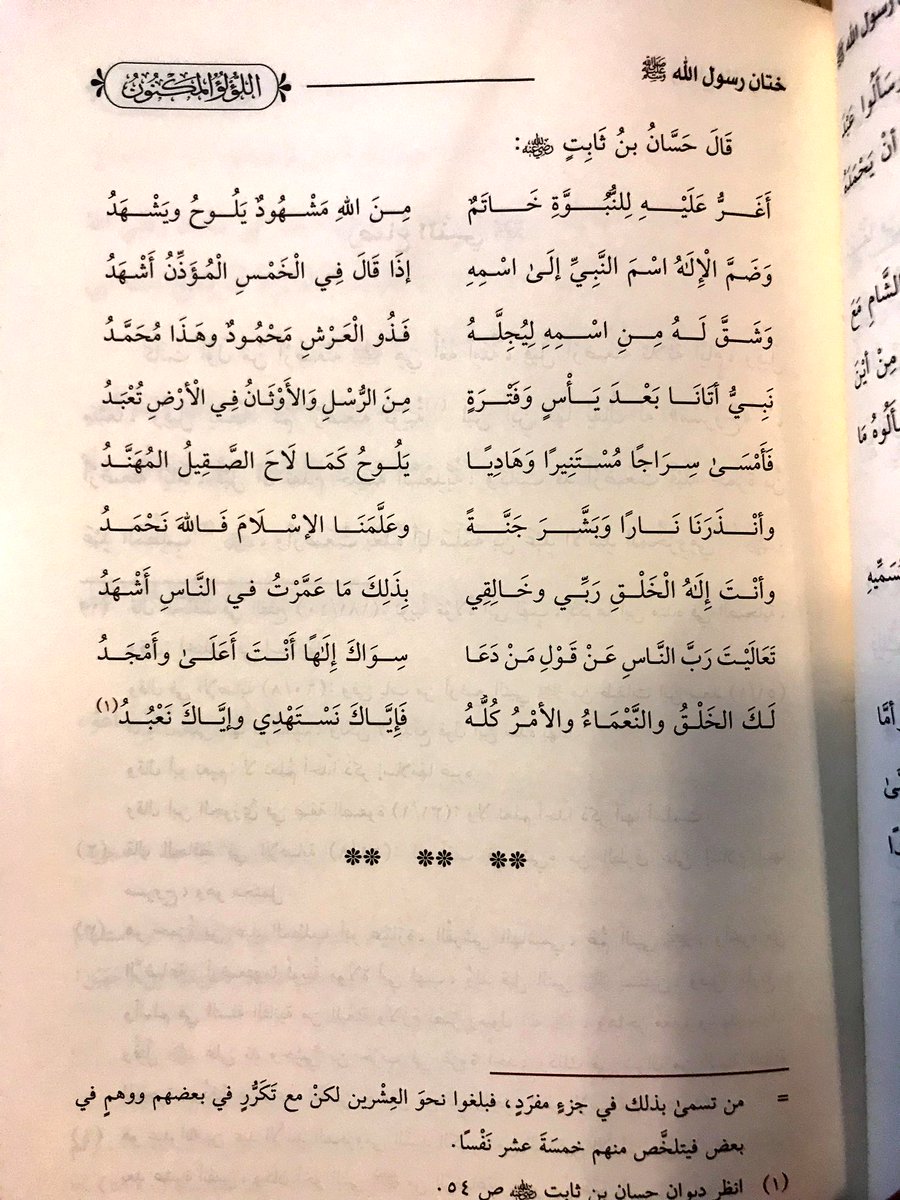 ختان رسول الله ﷺ اللؤلؤ المكنون
قَالَ حَسَّانُ بنُ ثَابِتٍ رضي الله عنه:
أَغَرُّ عَلَيْهِ لِلنُّبُوَّةِ خَاتَمٌ مِنَ اللهِ مَشْهُودٌ يَلُوحُ ويَشْهَدُ
وَضَمَّ الْإِلَهُ اسْمَ النَّبِيِّ إلَىٰ اسْمِهِ إذَا قَالَ فِي الْخَمْسِ الْمُؤَذِّنُ أَشْهَدُ
وَشَقَّ لَهُ مِنِ اسْمِهِ لِيُجِلَّهُ فَذُو الْعَرْشِ مَحْمُودٌ وهَذَا مُحَمَّدُ
نَبِيٌّ أتَانَا بَعْدَ يَأْسٍ وَفَتْرَةٍ مِنَ الرُّسْلِ وَالأَوْثَانُ فِي الْأَرْضِ تُعْبَدُ
فَأَمْسَىٰ سِرَاجًا مُسْتَنِيرًا وَهَادِيًا يَلُوحُ كَمَا لَاحَ الصَّقِيلُ المُهَنَّدُ
وأنْذَرَنَا نَارًا وَبَشَّرَ جَنَّةً وعَلَّمَنَا الإسْلَامَ فَاللهَ نَحْمَدُ
وأنْتَ إلَهُ الْخَلْقِ رَبِّي وخَالِقِي بِذَلِكَ مَا عَمَّرْتُ في النَّاسِ أَشْهَدُ
تَعَالَيْتَ رَبَّ النَّاسِ عَنْ قَوْلِ مَنْ دَعَا سِوَاكَ إلَهًا أَنْتَ أَعَلَىٰ وأَمْجَدُ
لَكَ الخَلْقُ والنَّعْمَاءُ والأمْرُ كلُّهُ فَإيَّاكَ نَسْتَهْدِي وإيَّاكَ نَعْبُدُ (١)
** ** **
= من تسمىٰ بذلك في جزءٍ مفرَدٍ، فبلغوا نحوَ العِشْرين لكنْ مع تَكَرُّرٍ في بعضهم ووهمٍ في
بعض فيتلخَّص منهم خمسَةَ عشر نَفْسًا.
(١) انظر ديوان حسان بن ثابت رضي الله عنه ص ٥٤.